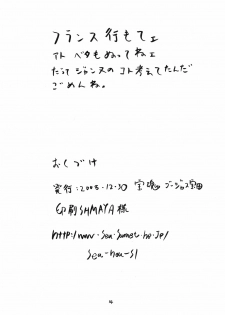 フランス行もてェ
アト ベタもぬってねェ
だってジャンヌのコト考えてたんだ
ごめんね。
おくづけ
発行:2005.12.30 宝魂 ゴージャス宝田
印刷 SHIMAYA様
http://www.sea.sannet.ne.jp/
sea-hou-s1